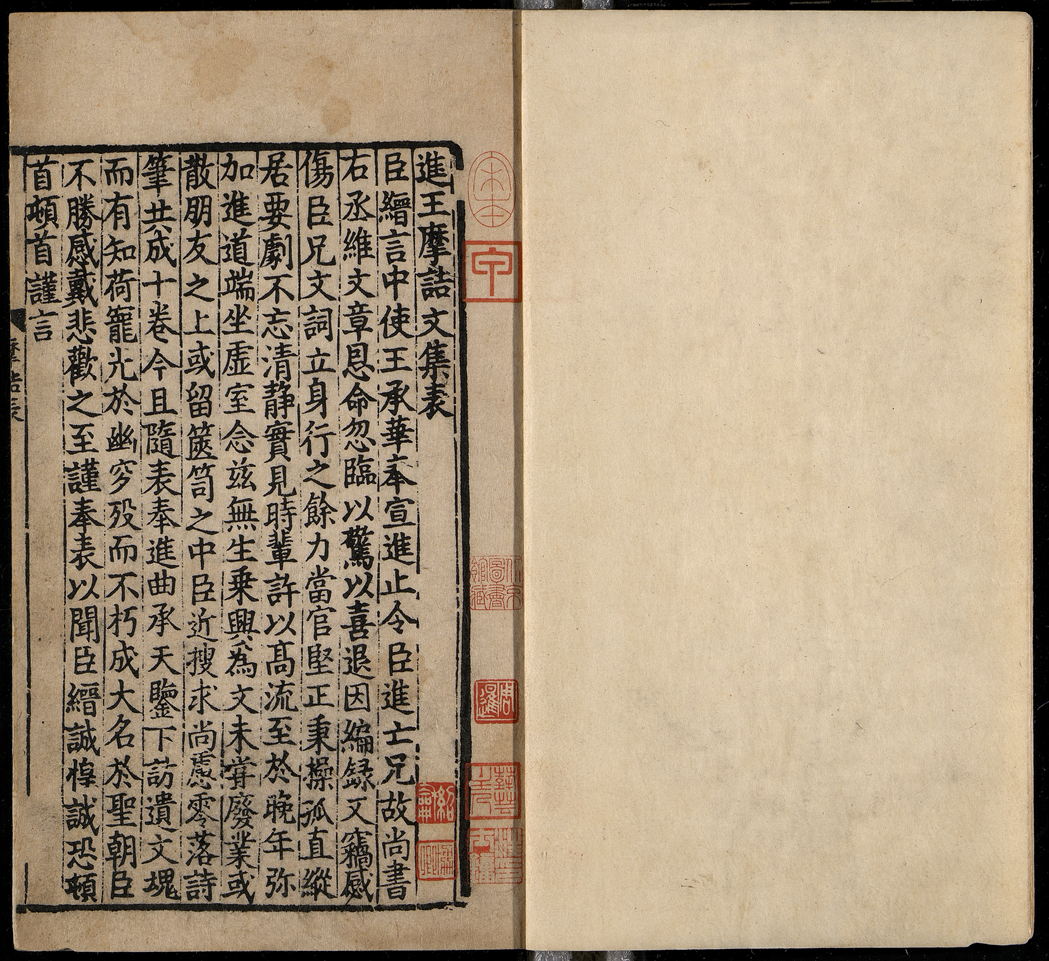 進王摩詰文集表
臣縉言中使王承華奉宣進止令臣進亡兄故尚書
右丞維文章恩命忽臨以驚以喜退因編録又竊感
傷臣兄文詞立身行之餘力當官堅正秉操孤直縱
居要劇不忘清静實見時輩許以髙流至於晚年弥
加進道端坐虚室念兹無生乗興為文未甞廢業或
散朋友之上或留篋笥之中臣近搜求尚慮零落詩
筆共成十卷今且隨表奉進曲承天鑒下訪遺文魂
而有知荷寵光於幽穸殁而不朽成大名於聖朝臣
不勝感戴悲歡之至謹奉表以聞臣縉誠惶誠恐頓
首頓首謹言
摩詰表
宋本